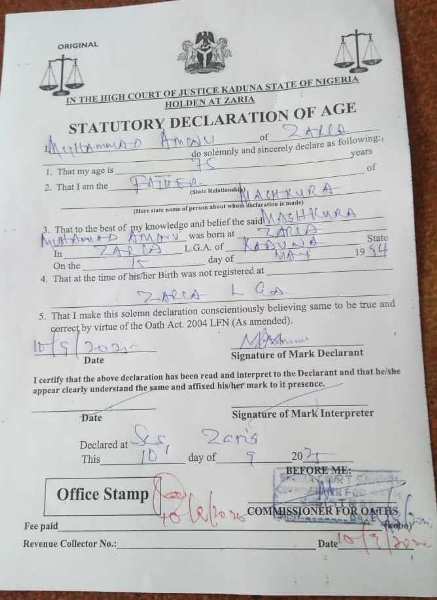 ORIGINAL
IN THE HIGH COURT OF JUSTICE KADUNA STATE OF NIGERIA
HOLDEN AT ZARIA
STATUTORY DECLARATION OF AGE
I, MUHAMMAD AMINU of ZARIA
do solemnly and sincerely declare as following:
1. That my age is 75 years
2. That I am the FATHER of
(State Relationship)
MASHKURA
(Here state name of person about whom declaration is made)
3. That to the best of my knowledge and belief the said MASHKURA
MUHAMMAD AMINU was born at ZARIA
In ZARIA L.G.A. of KADUNA State
On the 15 day of MAY 1984
4. That at the time of his/her Birth was not registered at
ZARIA LGA
5. That I make this solemn declaration conscientiously believing same to be true and
correct by virtue of the Oath Act. 2004 LFN (As amended).
10/9/
Date Signature of Mark Declarant
I certify that the above declaration has been read and interpret to the Declarant and that he/she
appear clearly understand the same and affixed his/her mark to it presence.
Date Signature of Mark Interpreter
Declared at Zaria
This 10 day of 9 202
BEFORE ME:
Office Stamp
COMMISSIONER FOR OATHS
Fee paid (kobo)
Revenue Collector No.: Date 10/9/